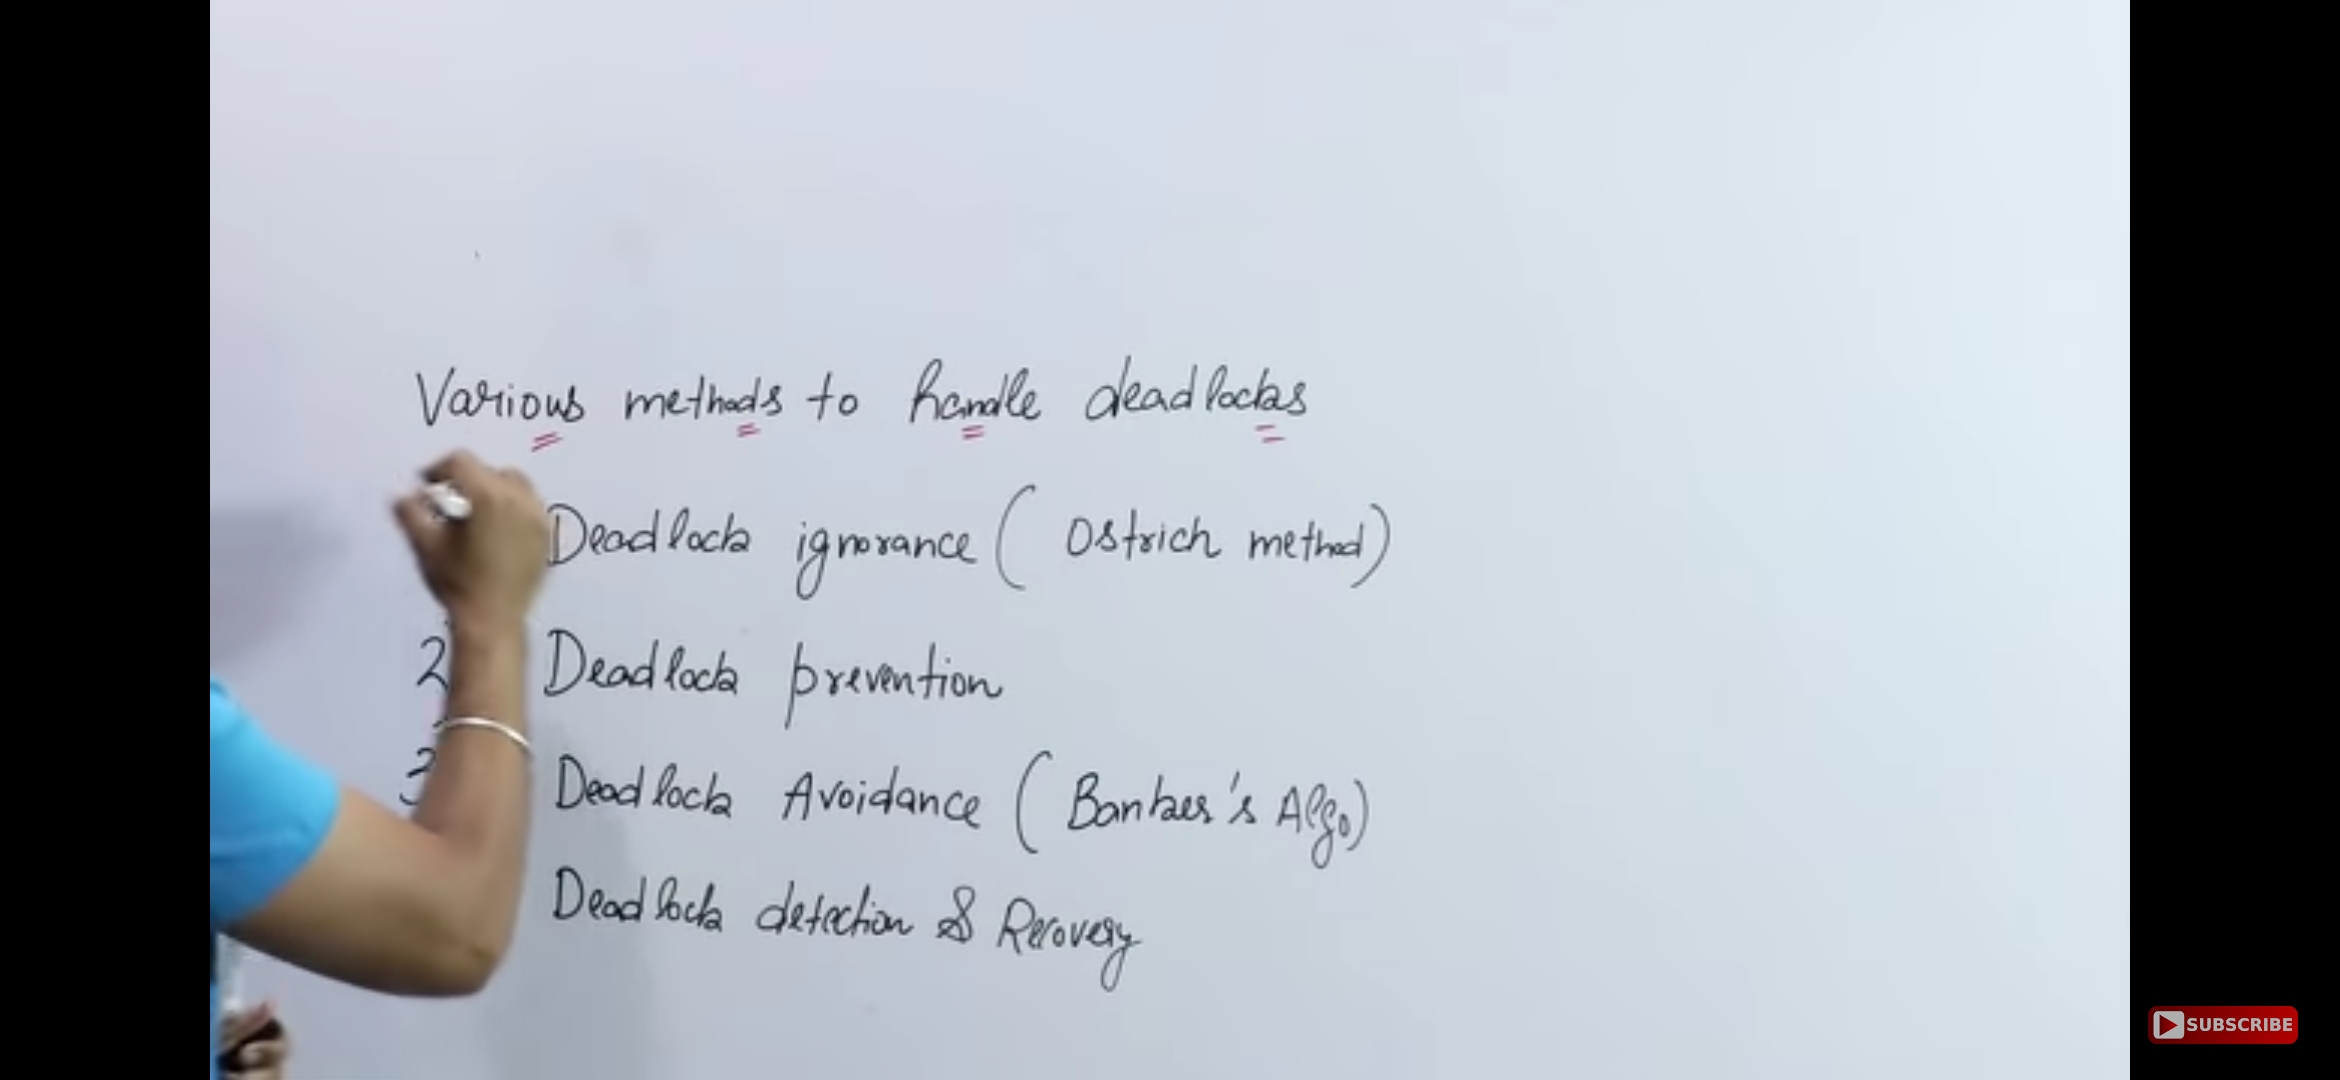 Various methods to handle deadlocks
Deadlock ignorance ( Ostrich method)
2 Deadlock prevention
3 Deadlock Avoidance ( Banker's Algo)
Deadlock detection & Recovery
SUBSCRIBE